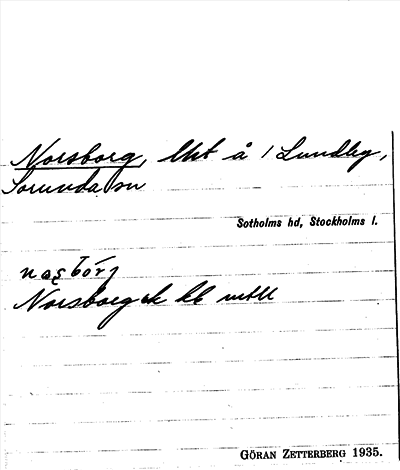 Norsborg, lht å 1 Lundby,
Sorunda sn
Sotholms hd, Stockholms l.
Norsborg ek
GÖRAN ZETTERBERG 1935.